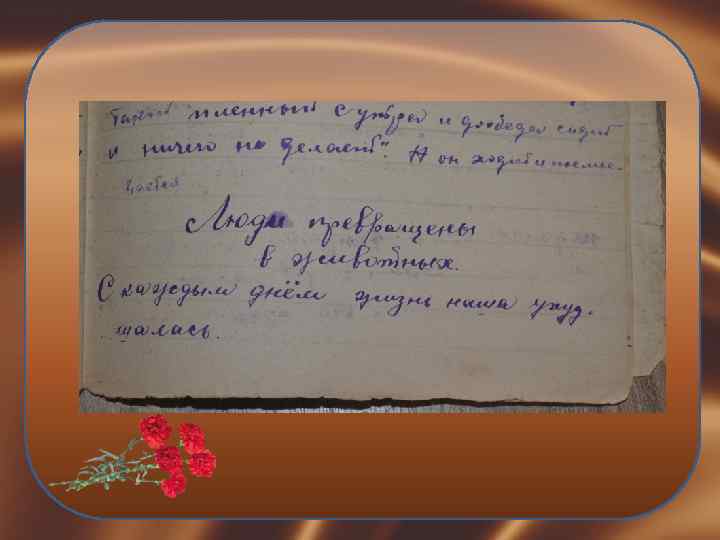 пленный с утра и до обеда сидит
и ничего не делает". А он ходит и
Люди превращены
в животных.
С каждым днём жизнь наша ухуд-
шалась.